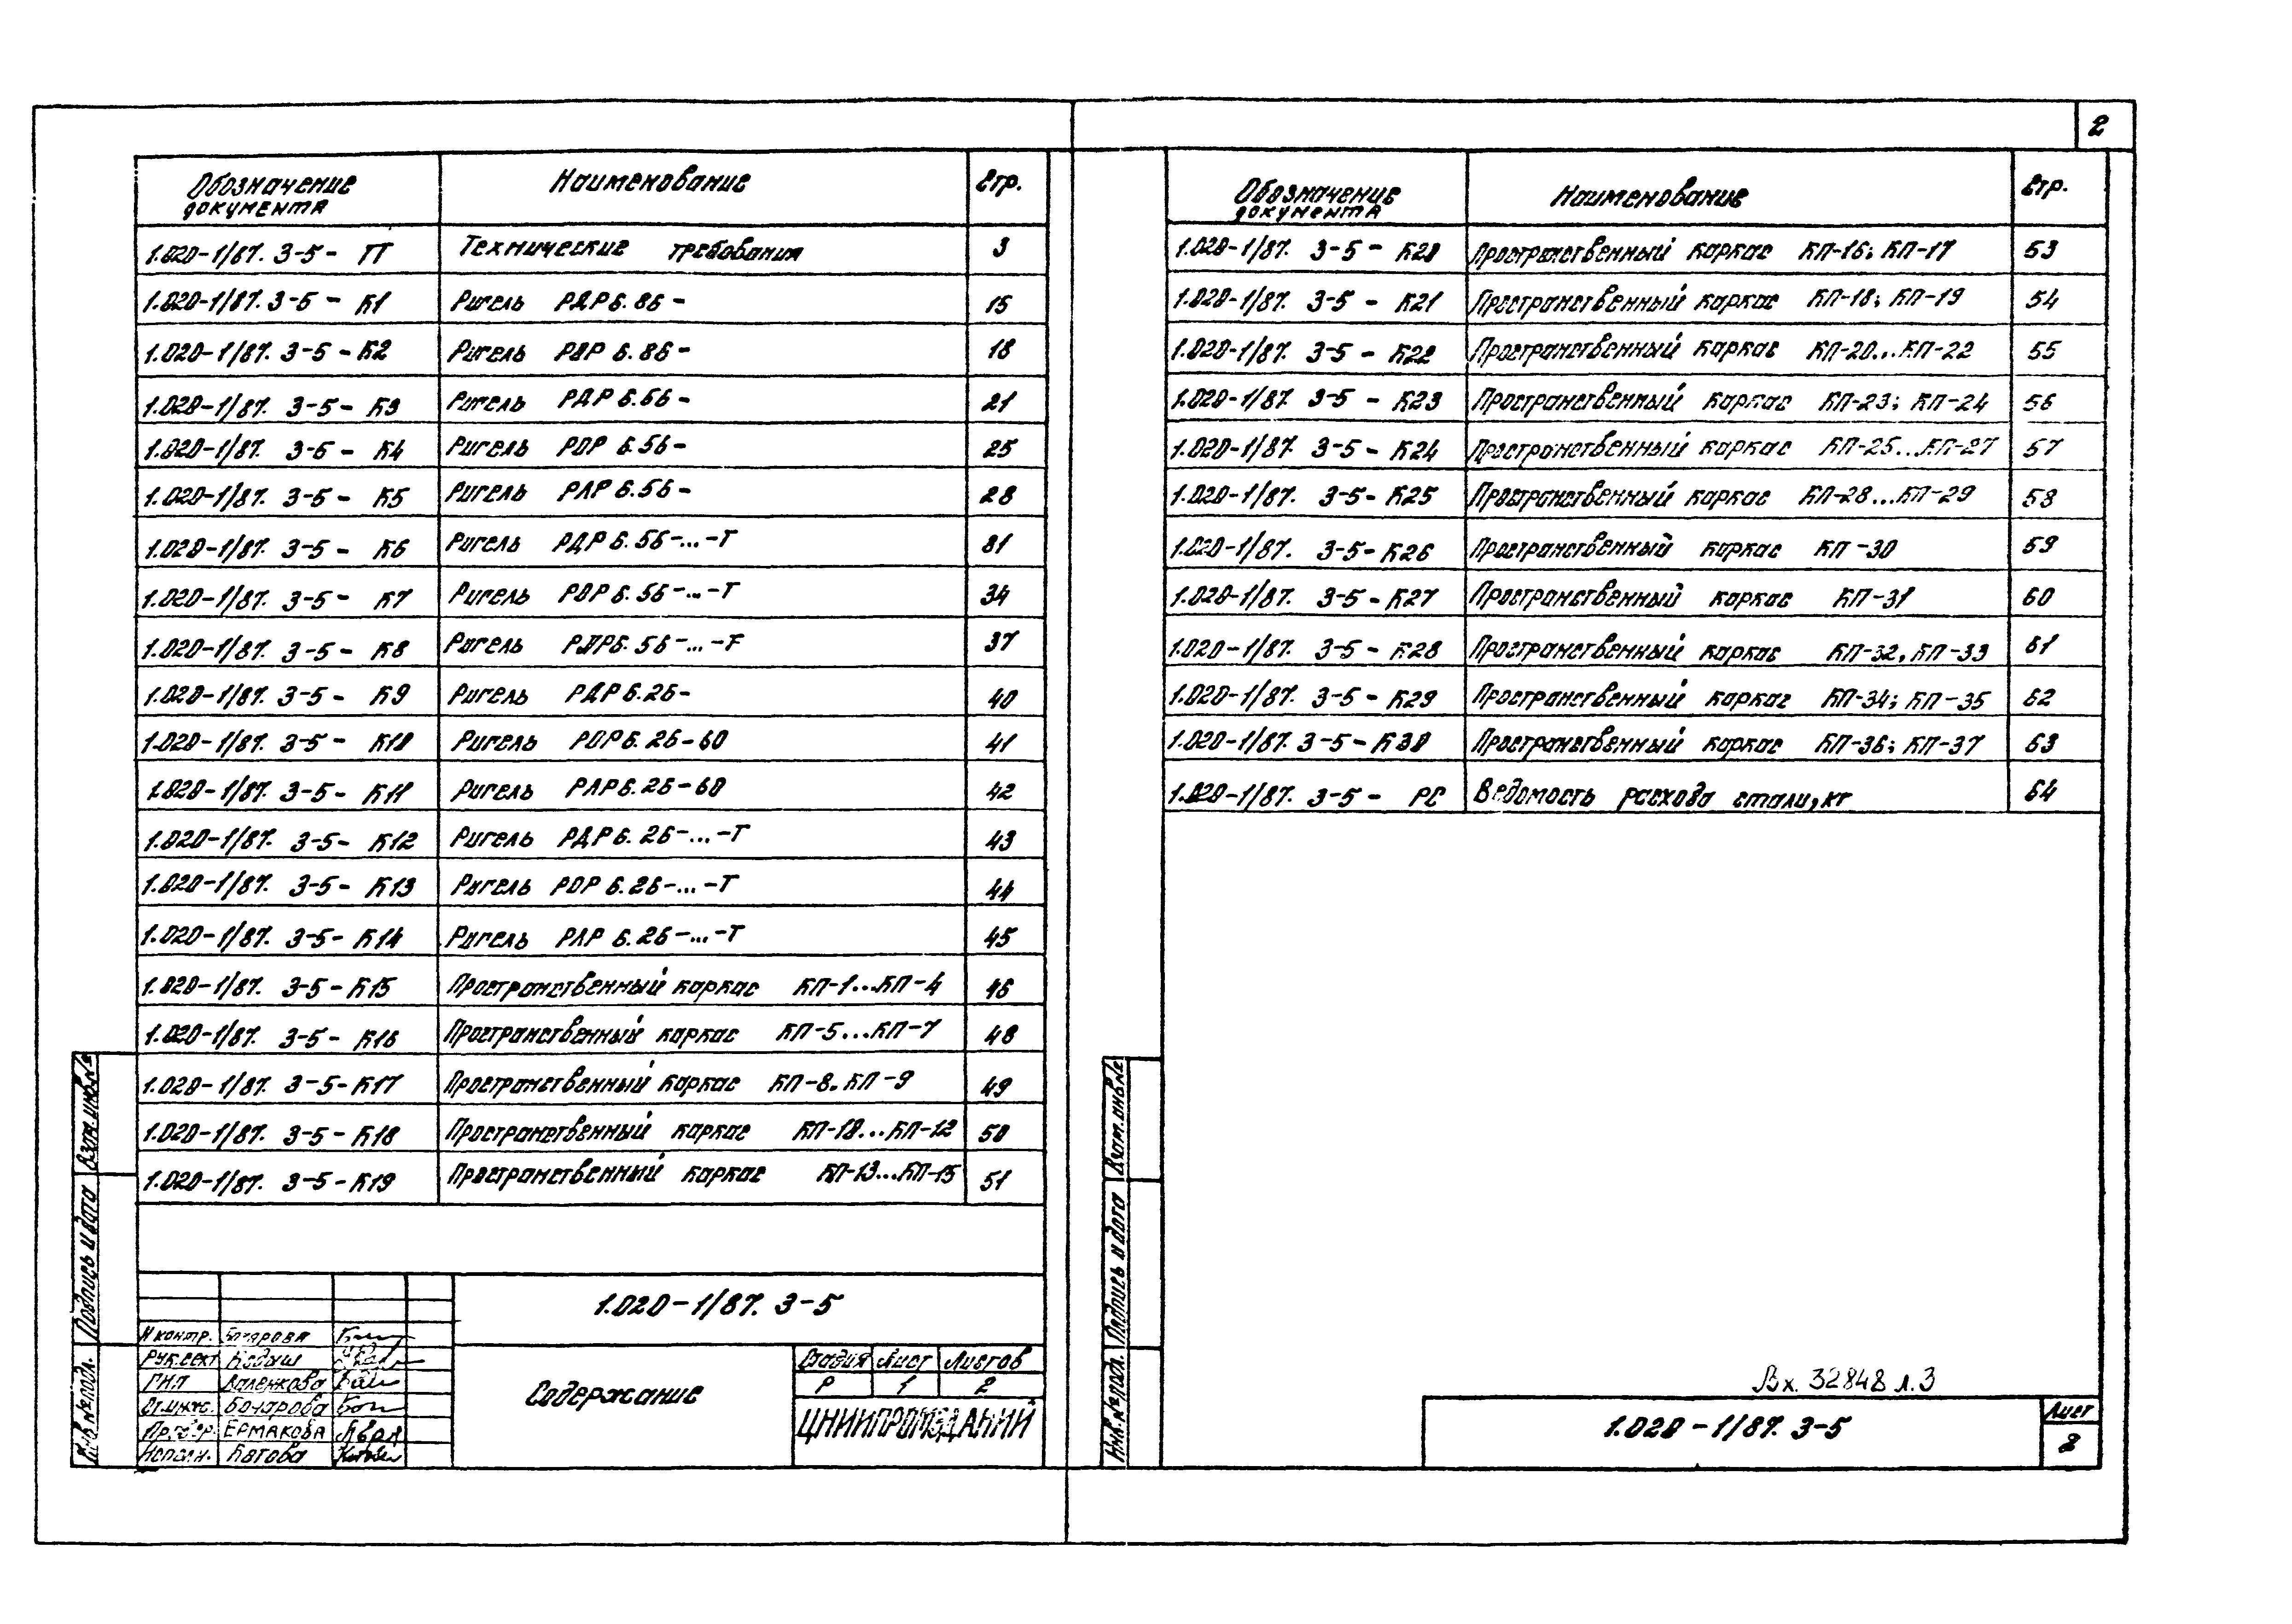 2
Обозначение документа Наименование Стр.
1.020-1/87. 3-5 - ТТ Технические требования 3
1.020-1/87. 3-5 - К1 Ригель РДР 6.86- 15
1.020-1/87. 3-5 - К2 Ригель РОР 6.86- 18
1.020-1/87. 3-5 - К3 Ригель РДР 6.56- 21
1.020-1/87. 3-5 - К4 Ригель РОР 6.56- 25
1.020-1/87. 3-5 - К5 Ригель РЛР 6.56- 28
1.020-1/87. 3-5 - К6 Ригель РДР 6.56-...-Т 31
1.020-1/87. 3-5 - К7 Ригель РОР 6.56-...-Т 34
1.020-1/87. 3-5 - К8 Ригель РЛР6.56-...-Т 37
1.020-1/87. 3-5 - К9 Ригель РДР 6.26- 40
1.020-1/87. 3-5 - К10 Ригель РОР 6.26-60 41
1.020-1/87. 3-5 - К11 Ригель РЛР 6.26-60 42
1.020-1/87. 3-5 - К12 Ригель РДР 6.26-...-Т 43
1.020-1/87. 3-5 - К13 Ригель РОР 6.26-...-Т 44
1.020-1/87. 3-5 - К14 Ригель РЛР 6.26-...-Т 45
1.020-1/87. 3-5 - К15 Пространственный каркас КП-1...КП-4 46
1.020-1/87. 3-5 - К16 Пространственный каркас КП-5...КП-7 48
1.020-1/87. 3-5 - К17 Пространственный каркас КП-8, КП-9 49
1.020-1/87. 3-5 - К18 Пространственный каркас КП-10...КП-12 50
1.020-1/87. 3-5 - К19 Пространственный каркас КП-13...КП-15 51
1.020-1/87. 3-5
Н контр. Бочарова
Рук.сект Кодыш
ГИП
Ст.инж. Бочарова
Провер. Ермакова
Исполн. Котова
Содержание
Стадия Лист Листов
Р 1 2
ЦНИИПРОМЗДАНИЙ
Взам.инв.№
Подпись и дата
Инв.№подл.
Обозначение документа Наименование Стр.
1.020-1/87. 3-5 - К20 Пространственный каркас КП-16; КП-17 53
1.020-1/87. 3-5 - К21 Пространственный каркас КП-18; КП-19 54
1.020-1/87. 3-5 - К22 Пространственный каркас КП-20...КП-22 55
1.020-1/87. 3-5 - К23 Пространственный каркас КП-23; КП-24 56
1.020-1/87. 3-5 - К24 Пространственный каркас КП-25...КП-27 57
1.020-1/87. 3-5 - К25 Пространственный каркас КП-28...КП-29 58
1.020-1/87. 3-5 - К26 Пространственный каркас КП-30 59
1.020-1/87. 3-5 - К27 Пространственный каркас КП-31 60
1.020-1/87. 3-5 - К28 Пространственный каркас КП-32, КП-33 61
1.020-1/87. 3-5 - К29 Пространственный каркас КП-34; КП-35 62
1.020-1/87. 3-5 - К30 Пространственный каркас КП-36; КП-37 63
1.020-1/87. 3-5 - РС Ведомость расхода стали, кг 64
Взам.инв.№
Подпись и дата
Инв.№подл.
Вх. 32848 л. 3
1.020-1/87. 3-5
Лист
2